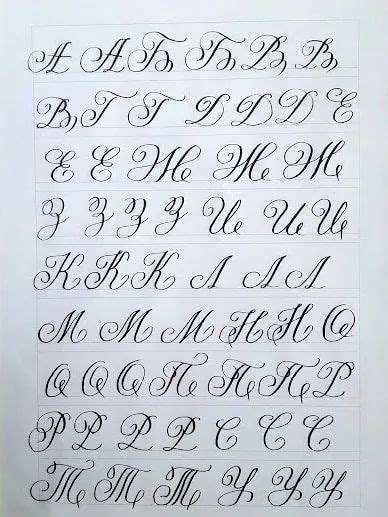 А А Б Б В В
В Г Г Д Д Д Е
Е Е Ж Ж Ж
З З З З И И И
К К К Л Л Л
М М М Н Н О
О О О П П П Р
Р Р Р Р С С С
Т Т Т У У У